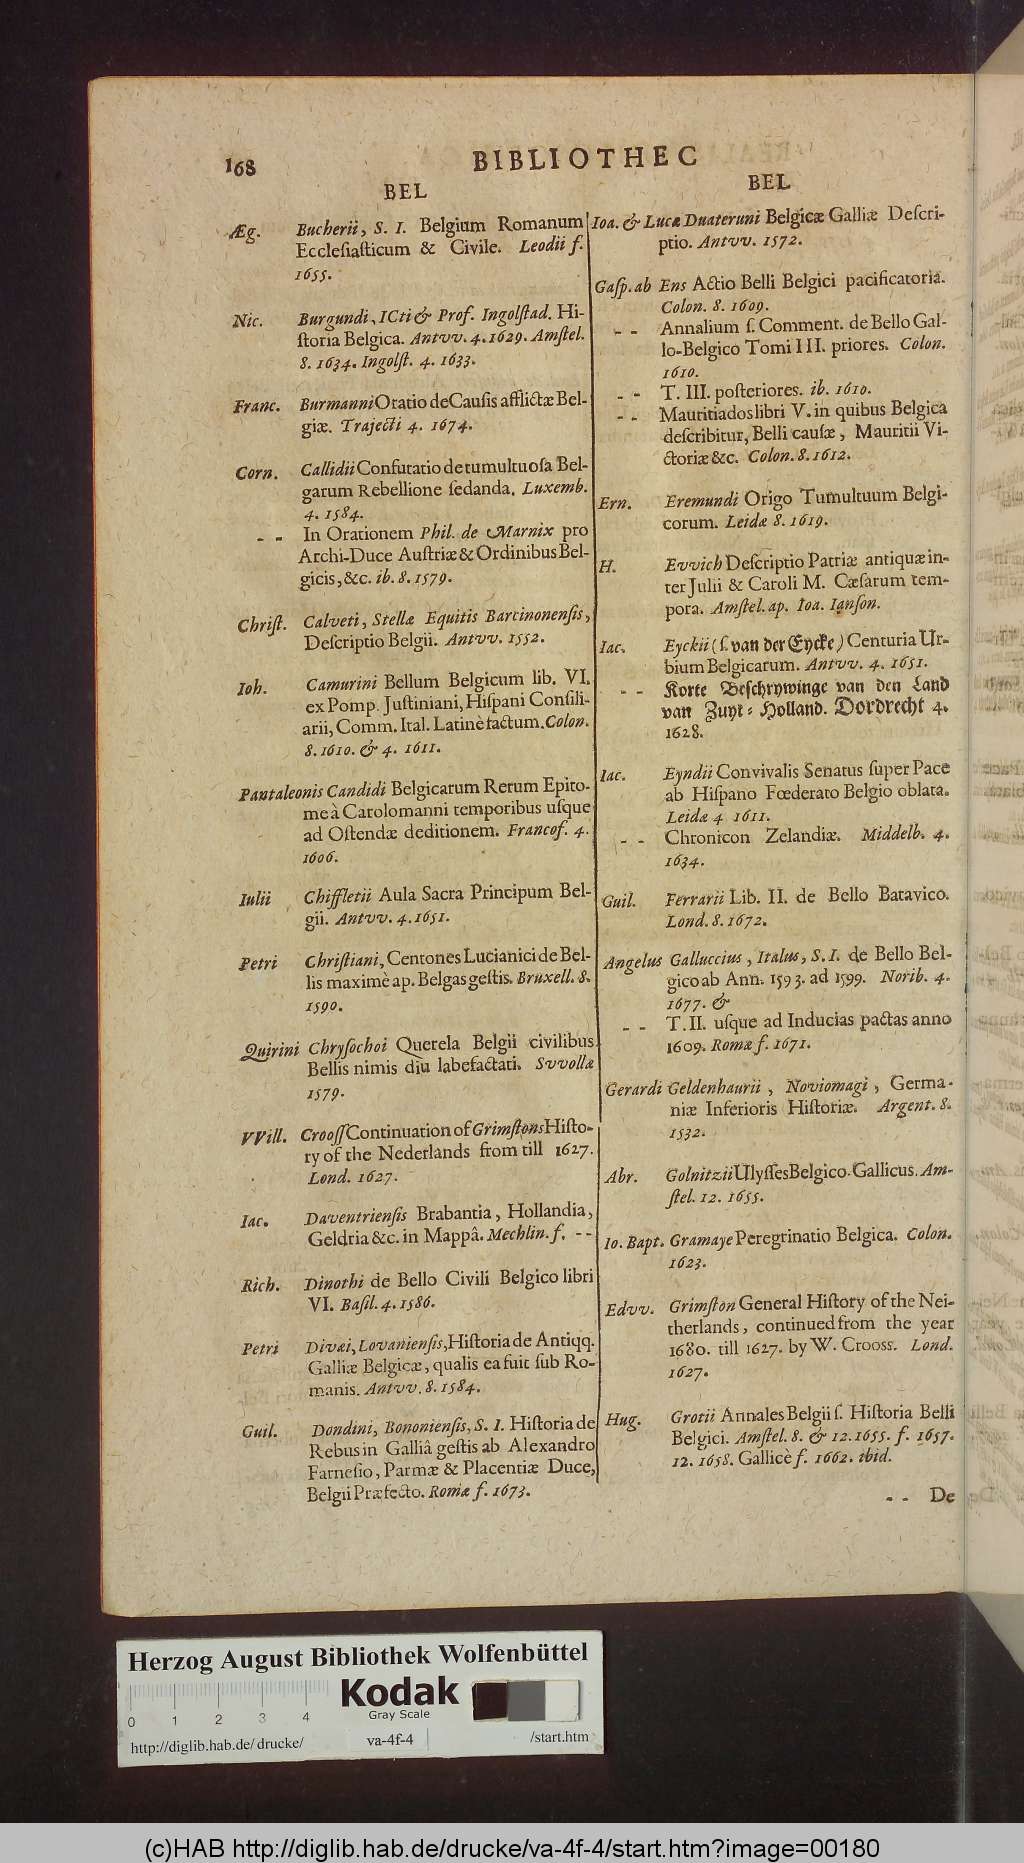 168
BIBLIOTHEC
BEL
Æg. Bucherii, S. I. Belgium Romanum
Ecclesiasticum & Civile. Leodii f.
1655.
Nic. Burgundi, ICti & Prof. Ingolstad. Hi-
storia Belgica. Antvv. 4. 1629. Amstel.
8. 1634. Ingolst. 4. 1633.
Franc. Burmanni Oratio de Causis afflictæ Bel-
giæ. Trajecti 4. 1674.
Corn. Callidii Confutatio de tumultuosa Bel-
garum Rebellione sedanda. Luxemb.
4. 1584.
- - In Orationem Phil. de Marnix pro
Archi-Duce Austriæ & Ordinibus Bel-
gicis, &c. ib. 8. 1579.
Christ. Calveti, Stellæ Equitis Barcinonensis,
Descriptio Belgii. Antvv. 1552.
Ioh. Camurini Bellum Belgicum lib. VI.
ex Pomp. Justiniani, Hispani Consili-
arii, Comm. Ital. Latinè factum. Colon.
8. 1610. & 4. 1611.
Pantaleonis Candidi Belgicarum Rerum Epito-
me à Carolomanni temporibus usque
ad Ostendæ deditionem. Francof. 4.
1606.
Iulii Chiffletii Aula Sacra Principum Bel-
gii. Antvv. 4. 1651.
Petri Christiani, Centones Lucianici de Bel-
lis maximè ap. Belgas gestis. Bruxell. 8.
1590.
Quirini Chrysochoi Querela Belgii civilibus
Bellis nimis diu labefactati. Svvollæ
1579.
VVill. Crooss Continuation of Grimstons Histo-
ry of the Nederlands from till 1627.
Lond. 1627.
Iac. Daventriensis Brabantia, Hollandia,
Geldria &c. in Mappâ. Mechlin. f. - -
Rich. Dinothi de Bello Civili Belgico libri
VI. Basil. 4. 1586.
Petri Divæi, Lovaniensis, Historia de Antiqq.
Galliæ Belgicæ, qualis ea fuit sub Ro-
manis. Antvv. 8. 1584.
Guil. Dondini, Bononiensis, S. I. Historia de
Rebus in Galliâ gestis ab Alexandro
Farnesio, Parmæ & Placentiæ Duce,
Belgii Præfecto. Romæ f. 1673.
BEL
Ioa. & Lucæ Duateruni Belgicæ Galliæ Descri-
ptio. Antvv. 1572.
Gasp. ab Ens Actio Belli Belgici pacificatoria.
Colon. 8. 1609.
- - Annalium s. Comment. de Bello Gal-
lo-Belgico Tomi III. priores. Colon.
1610.
- - T. III. posteriores. ib. 1610.
- - Mauritiados libri V. in quibus Belgica
describitur, Belli causæ, Mauritii Vi-
ctoriæ &c. Colon. 8. 1612.
Ern. Eremundi Origo Tumultuum Belgi-
corum. Leidæ 8. 1619.
H. Evvich Descriptio Patriæ antiquæ in-
ter Julii & Caroli M. Cæsarum tem-
pora. Amstel. ap. Ioa. Ianson.
Iac. Eyckii (s. van der Eycke) Centuria Ur-
bium Belgicarum. Antvv. 4. 1651.
- - Korte Beschrywinge van den Land
van Zuyt-Holland. Dordrecht 4.
1628.
Iac. Eyndii Convivalis Senatus super Pace
ab Hispano Fœderato Belgio oblata.
Leidæ 4 1611.
- - Chronicon Zelandiæ. Middelb. 4.
1634.
Guil. Ferrarii Lib. II. de Bello Batavico.
Lond. 8. 1672.
Angelus Galluccius, Italus, S. I. de Bello Bel-
gico ab Ann. 1593. ad 1599. Norib. 4.
1677. &
- - T. II. usque ad Inducias pactas anno
1609. Romæ f. 1671.
Gerardi Geldenhaurii, Noviomagi, Germa-
niæ Inferioris Historiæ. Argent. 8.
1532.
Abr. Golnitzii Ulysses Belgico-Gallicus. Am-
stel. 12. 1655.
Io. Bapt. Gramaye Peregrinatio Belgica. Colon.
1623.
Edvv. Grimston General History of the Nei-
therlands, continued from the year
1680. till 1627. by W. Crooss. Lond.
1627.
Hug. Grotii Annales Belgii s. Historia Belli
Belgici. Amstel. 8. & 12. 1655. f. 1657.
12. 1658. Gallicè f. 1662. ibid.
- - De
Herzog August Bibliothek Wolfenbüttel
Kodak
Gray Scale
0 1 2 3 4
http://diglib.hab.de/drucke/ va-4f-4 /start.htm
(c)HAB http://diglib.hab.de/drucke/va-4f-4/start.htm?image=00180